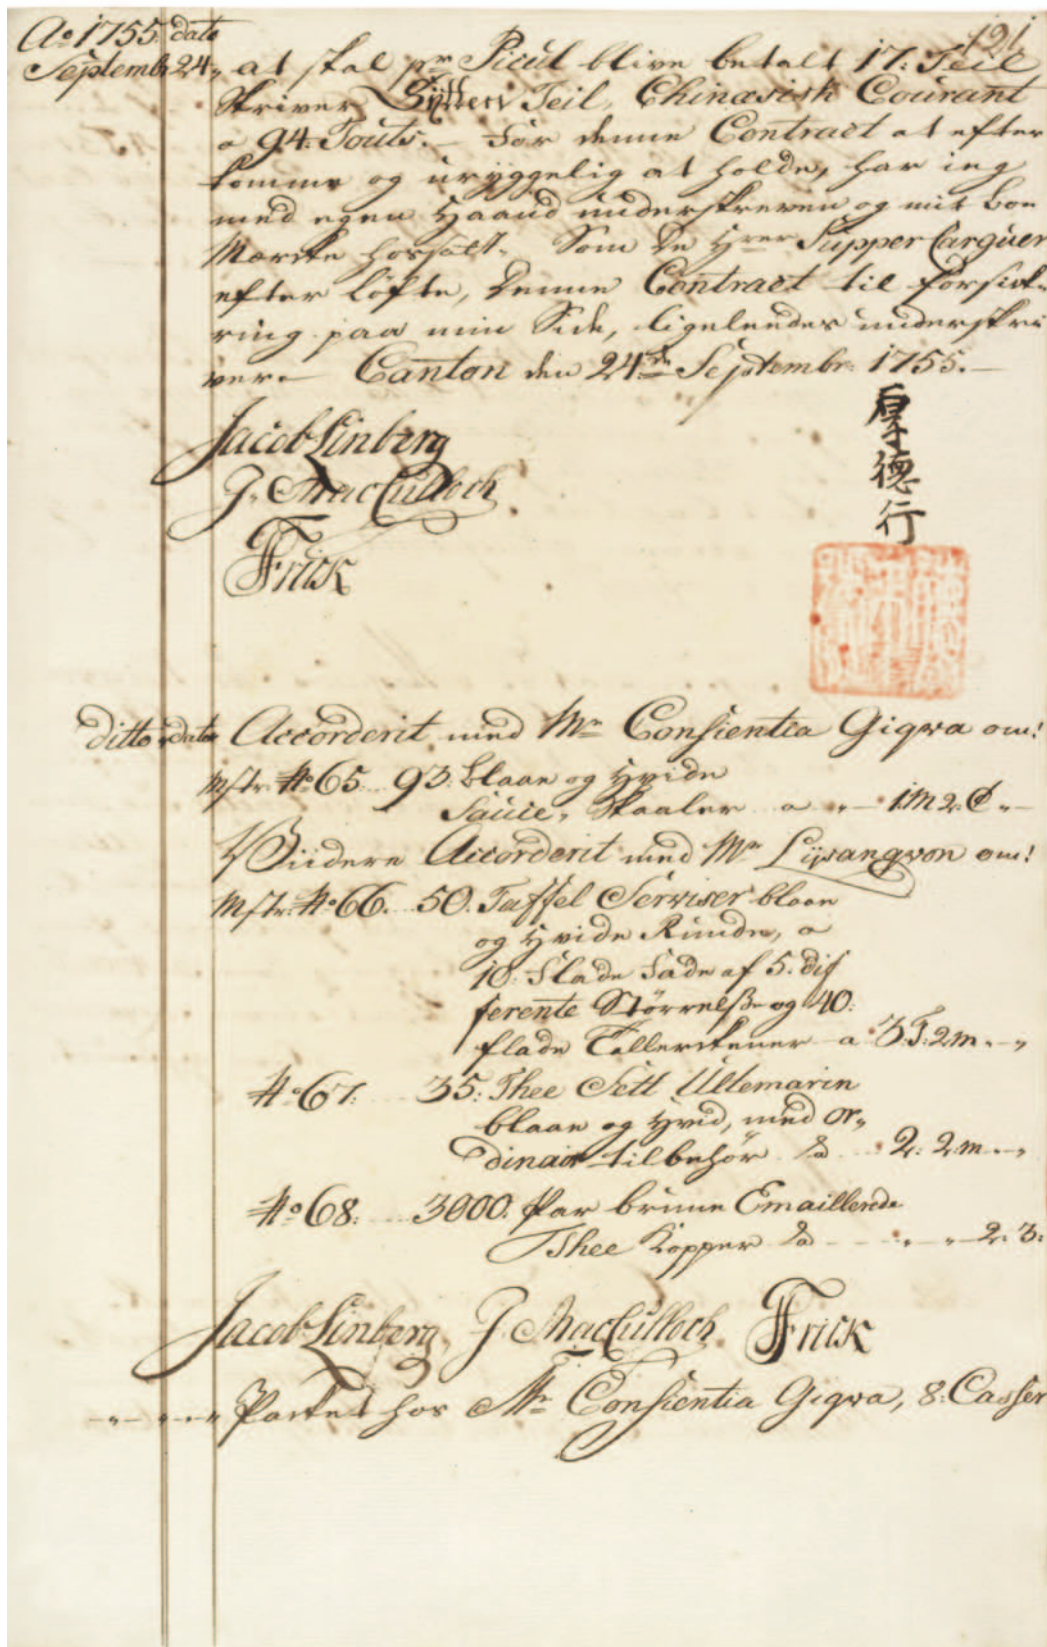 Ao 1755. dato 121
Septembr 24. at skal pr Picul blive betalt 17. Teil
skriver Sÿtten Teil, Chinasisk Courant
a 94. Touts. For denne Contract at efter
komme og uryggelig at holde, har ieg
med egen Haand underskreven og mit boe
Mærke hossatt. Som De Hrer Supper Carguer
efter løfte, denne Contract til forsik-
ring paa min Side, ligeleedes underskri
ver. Canton den 24de Septembr: 1755.
厚德行
Jacob Linberg
J. MacCulloch
Frick
Ditto dato Accorderit med Mr Consientia Giqva om!
Mstr. No 65. 93. blaae og Hvide
Sauce, Skaaler a " 1M 2 C "
Viidere Accorderit med Mr Lisangvon om!
Mstr. No 66. 50. Taffel Serviser blaae
og Hvide Runde, a
10. Flade Fade af 5. dif
ferente Størrelse og 40.
flade Tallerkener a 3.T. 2m. "
No 67. 35. Thee Sett Ultemarin
blaae og Hvid, med or,,
dinair tilbehør a 2. 2.m. "
No 68. 3000. Par brune Emaillerede
Thee Kopper a " " 2. 3.
Jacob Linberg, J. MacCulloch. Frick
Pakket hos Mr Consientia Giqva, 8. Casser